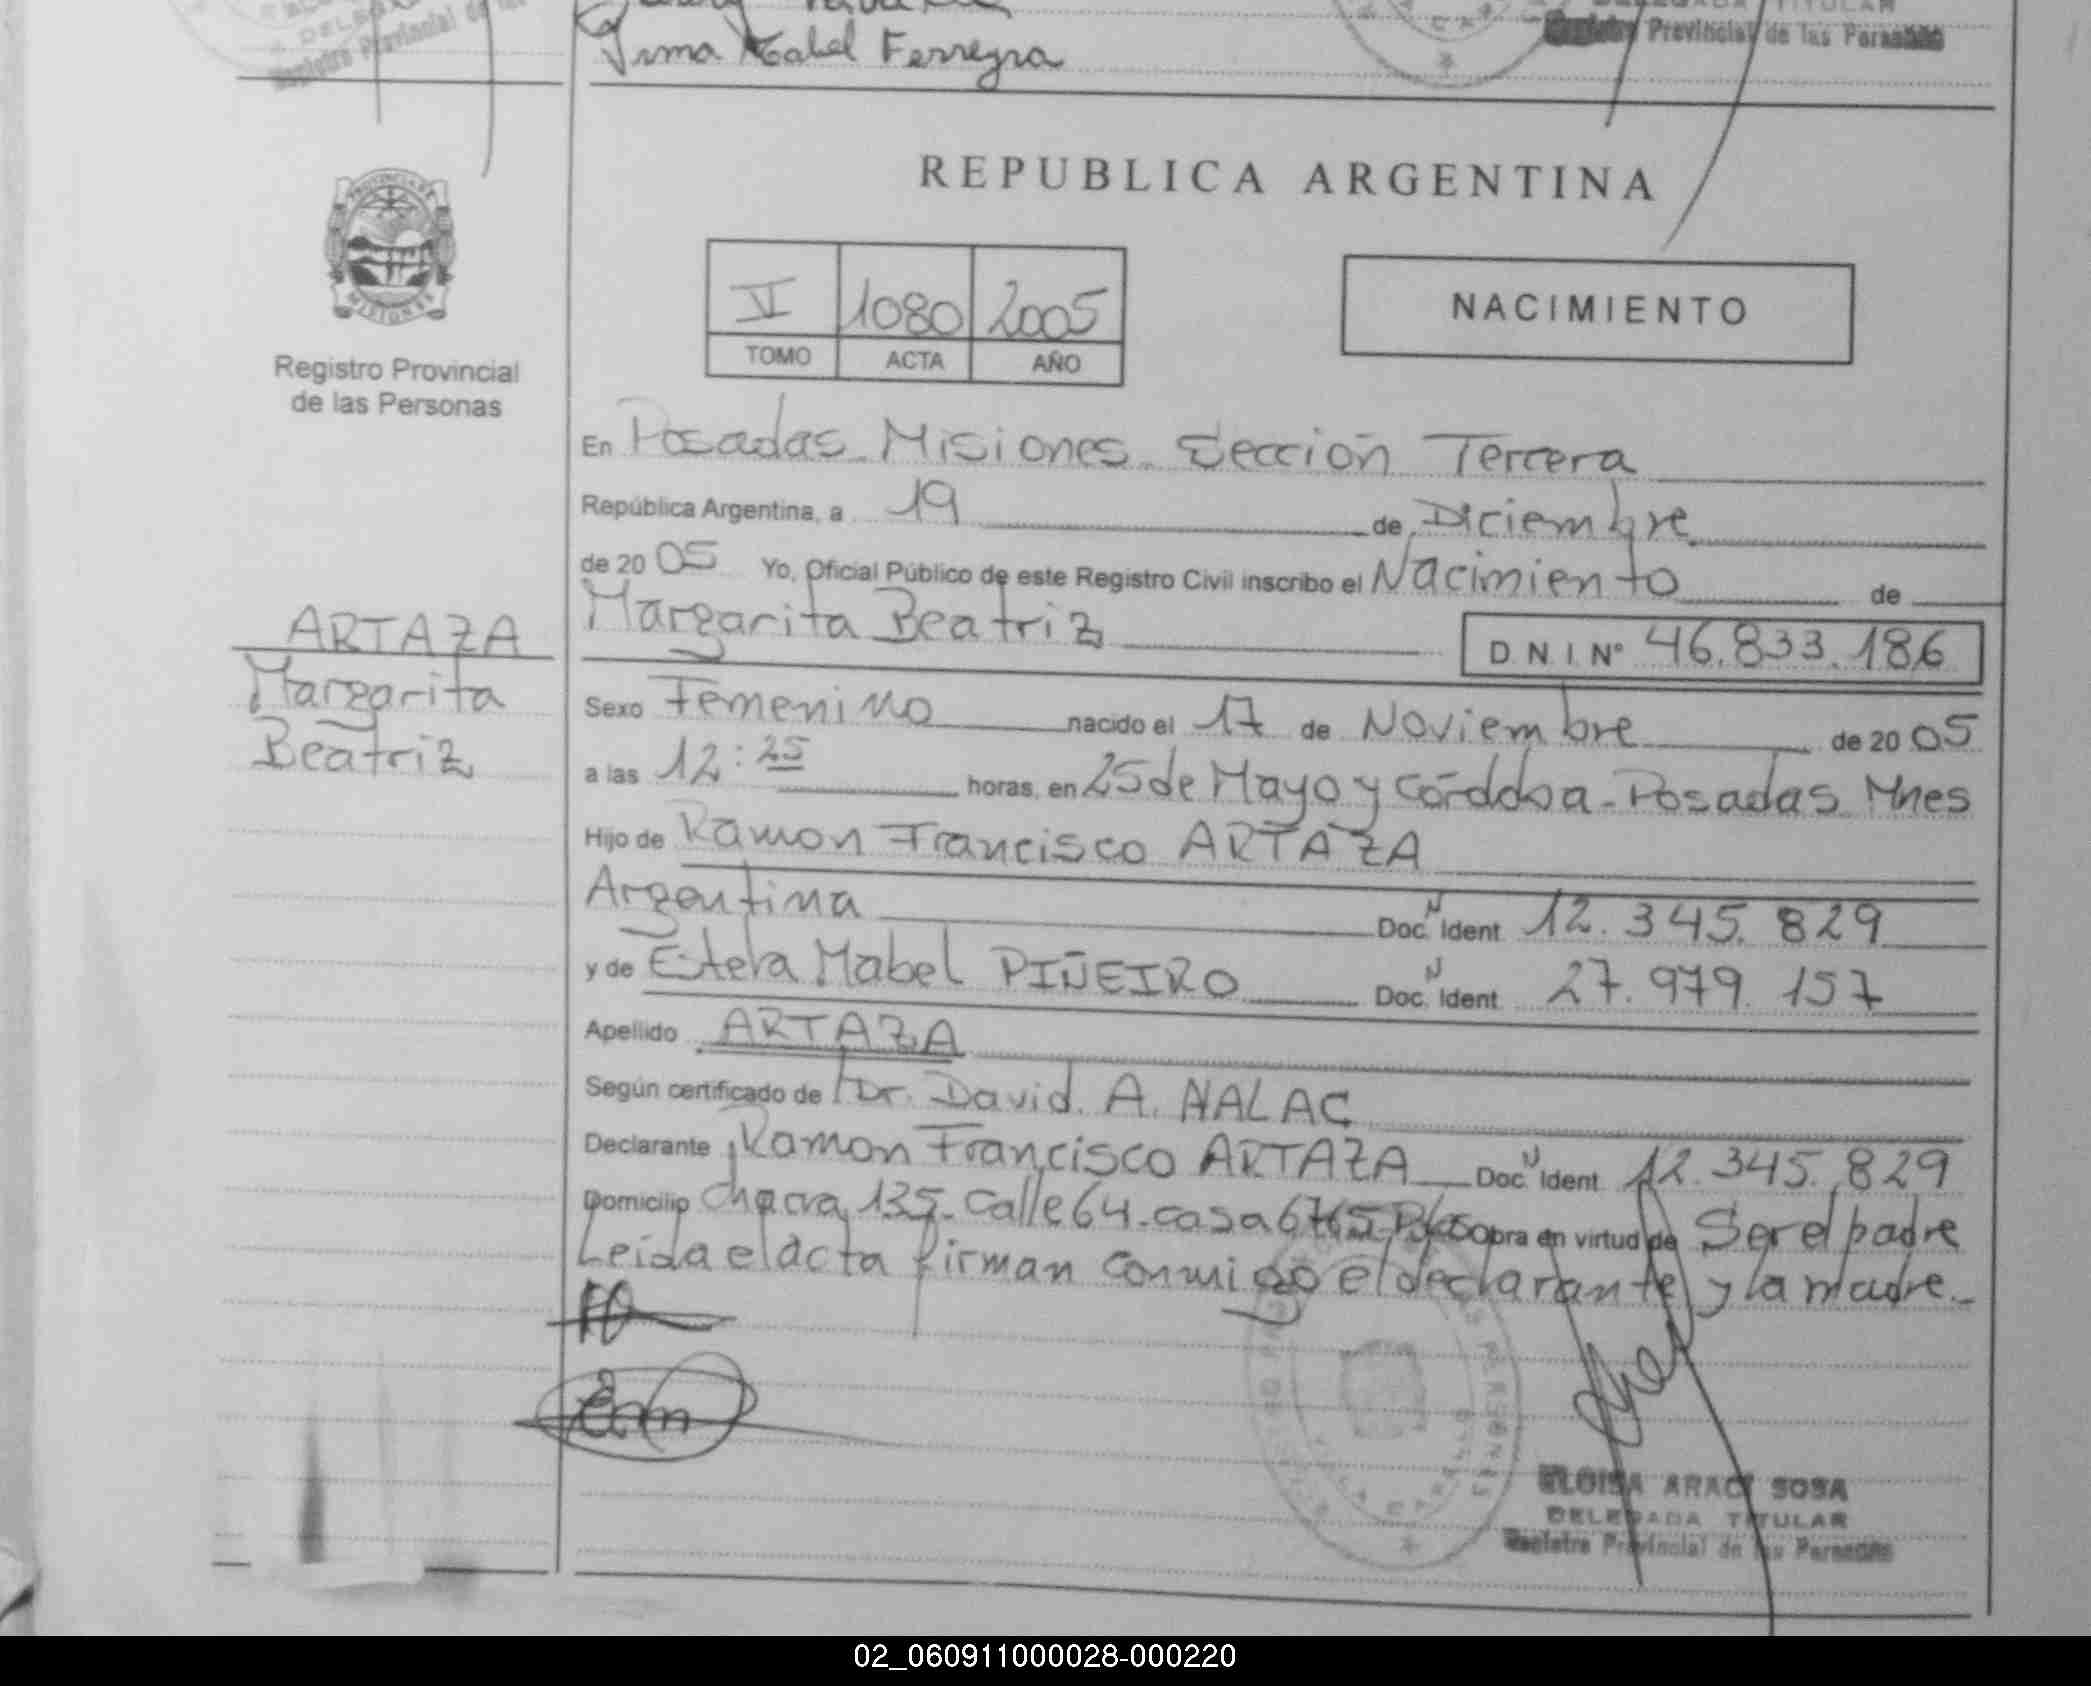 Irma Mabel Ferreyra
Registro Provincial de las Personas
REPUBLICA ARGENTINA
PROVINCIA DE
MISIONES
Registro Provincial
de las Personas
VI 1080 2005
TOMO ACTA AÑO
NACIMIENTO
En Posadas Misiones Sección Tercera
República Argentina, a 19 de Diciembre
de 20 05 Yo, Oficial Público de este Registro Civil inscribo el Nacimiento de
Margarita Beatriz D.N.I. Nº 46.833.186
ARTAZA
Margarita
Beatriz
Sexo Femenino nacido el 17 de Noviembre de 20 05
a las 12:25 horas, en 25 de Mayo y Córdoba - Posadas Mnes
Hijo de Ramon Francisco ARTAZA
Argentina Doc. N Ident 12.345.829
y de Estela Mabel PIÑEIRO Doc. N Ident 27.979.157
Apellido ARTAZA
Según certificado de Dr. David A. NALAC
Declarante Ramon Francisco ARTAZA Doc. N Ident 12.345.829
Domicilio Chacra 135 - Calle 64 - casa 6765 obra en virtud de Ser el padre
Leída el acta firman conmigo el declarante y la madre.
ELOISA ARACI SOSA
DELEGADA TITULAR
Registro Provincial de las Personas
02_060911000028-000220